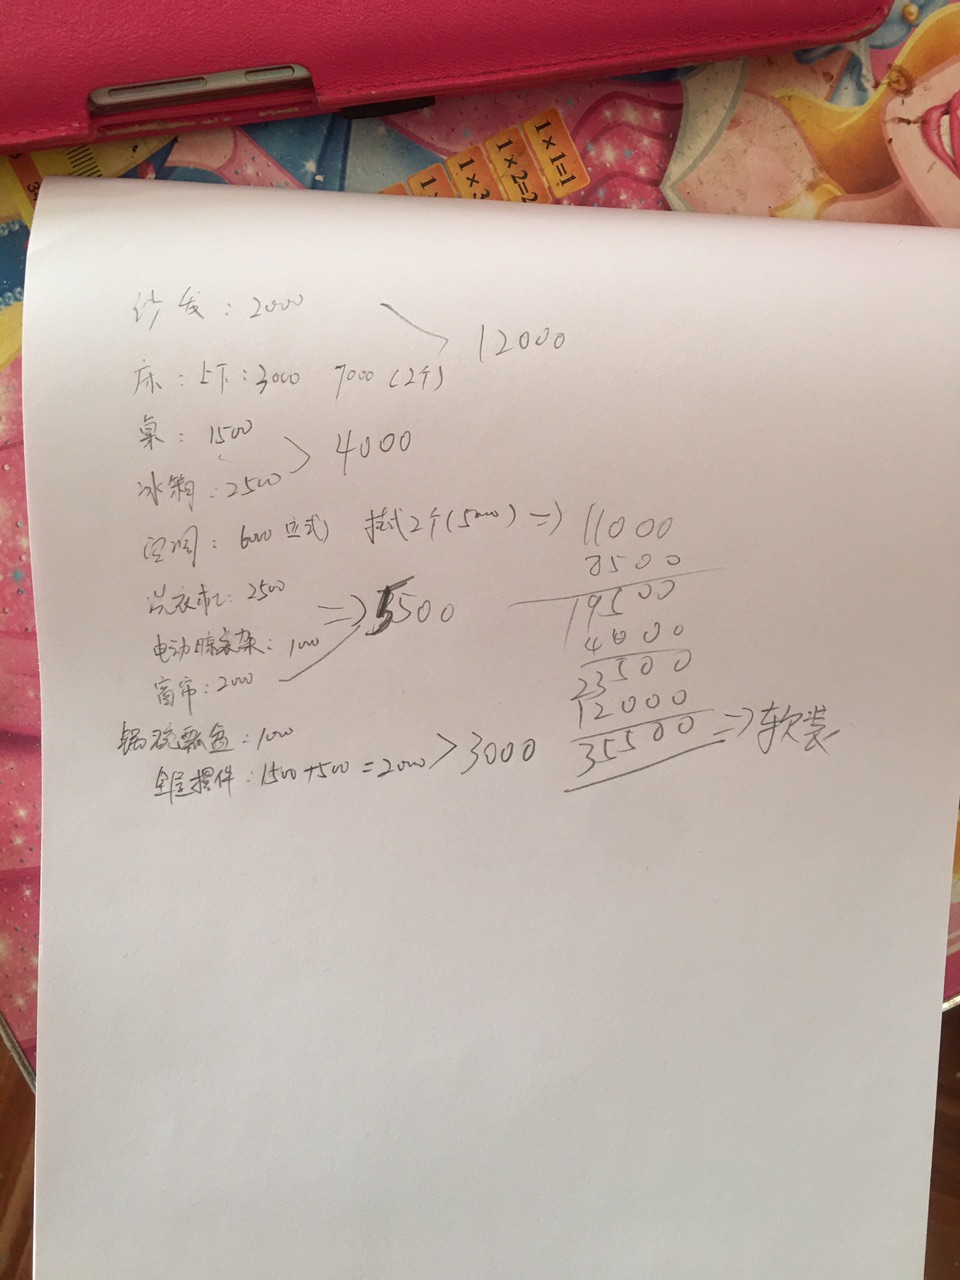 1×1=1
1×2=2
1×3
沙发：2000
12000
床：上下：3000 7000（2个）
桌：1500
4000
冰箱：2500
空调：6000立式） 挂式2个（5000）=> 11000
8500
洗衣机：2500
19500
=>5500
电动晾衣架：1000
4000
窗帘：2000
23500
12000
锅碗瓢盆：1000
35500 =>软装
全屋摆件：1500+500=2000 >3000